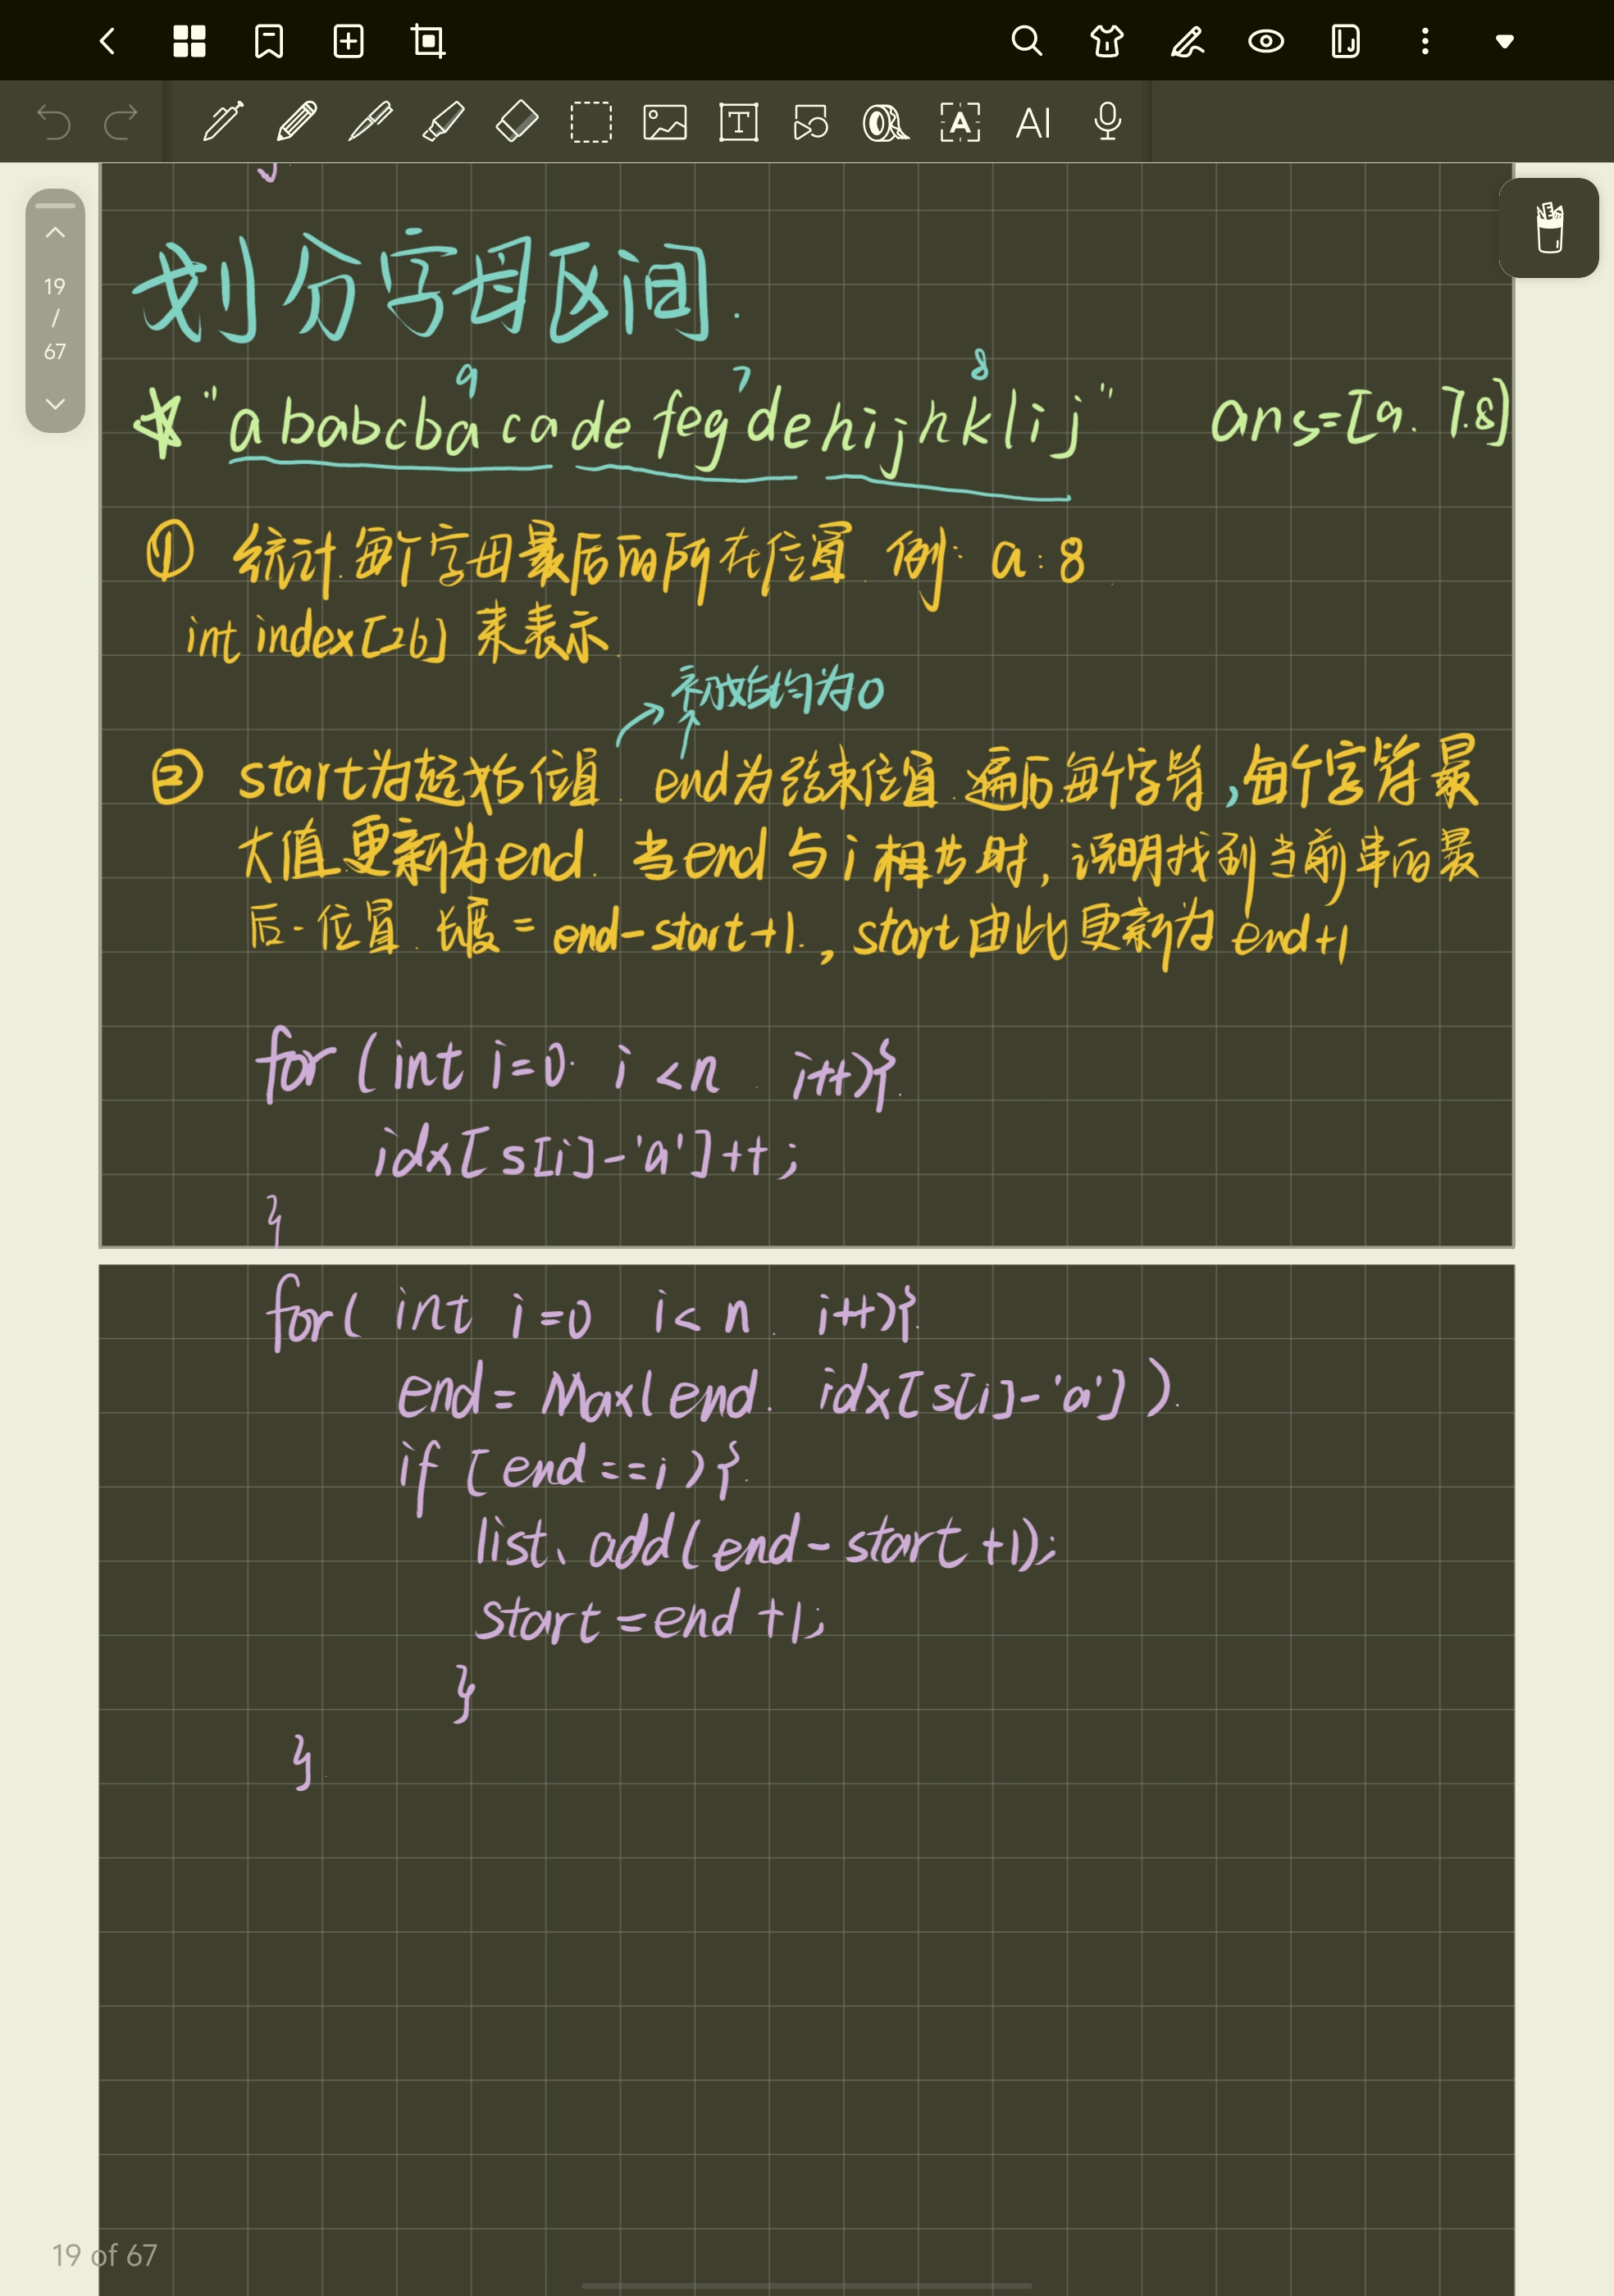 AI
19
/
67
划分字母区间.
9 7 8
"ababcbacadefegdehijhklij" ans=[9.7.8]
① 统计每个字母最后的所在位置 例: a:8
int index[26] 来表示.
初始均为0
② start为起始位置 end为结束位置 遍历每个字符,每个字符最
大值更新为end. 当end与i相等时,说明找到当前串的最
后一位置 长度=end-start+1.,start由此更新为end+1
for (int i=0 i<n i++){
idx[s[i]-'a']++;
}
for( int i=0 i<n i++){
end=Max(end. idx[s[i]-'a']).
if [end==i){
list、add(end-start+1);
start=end+1;
}
}
19 of 67